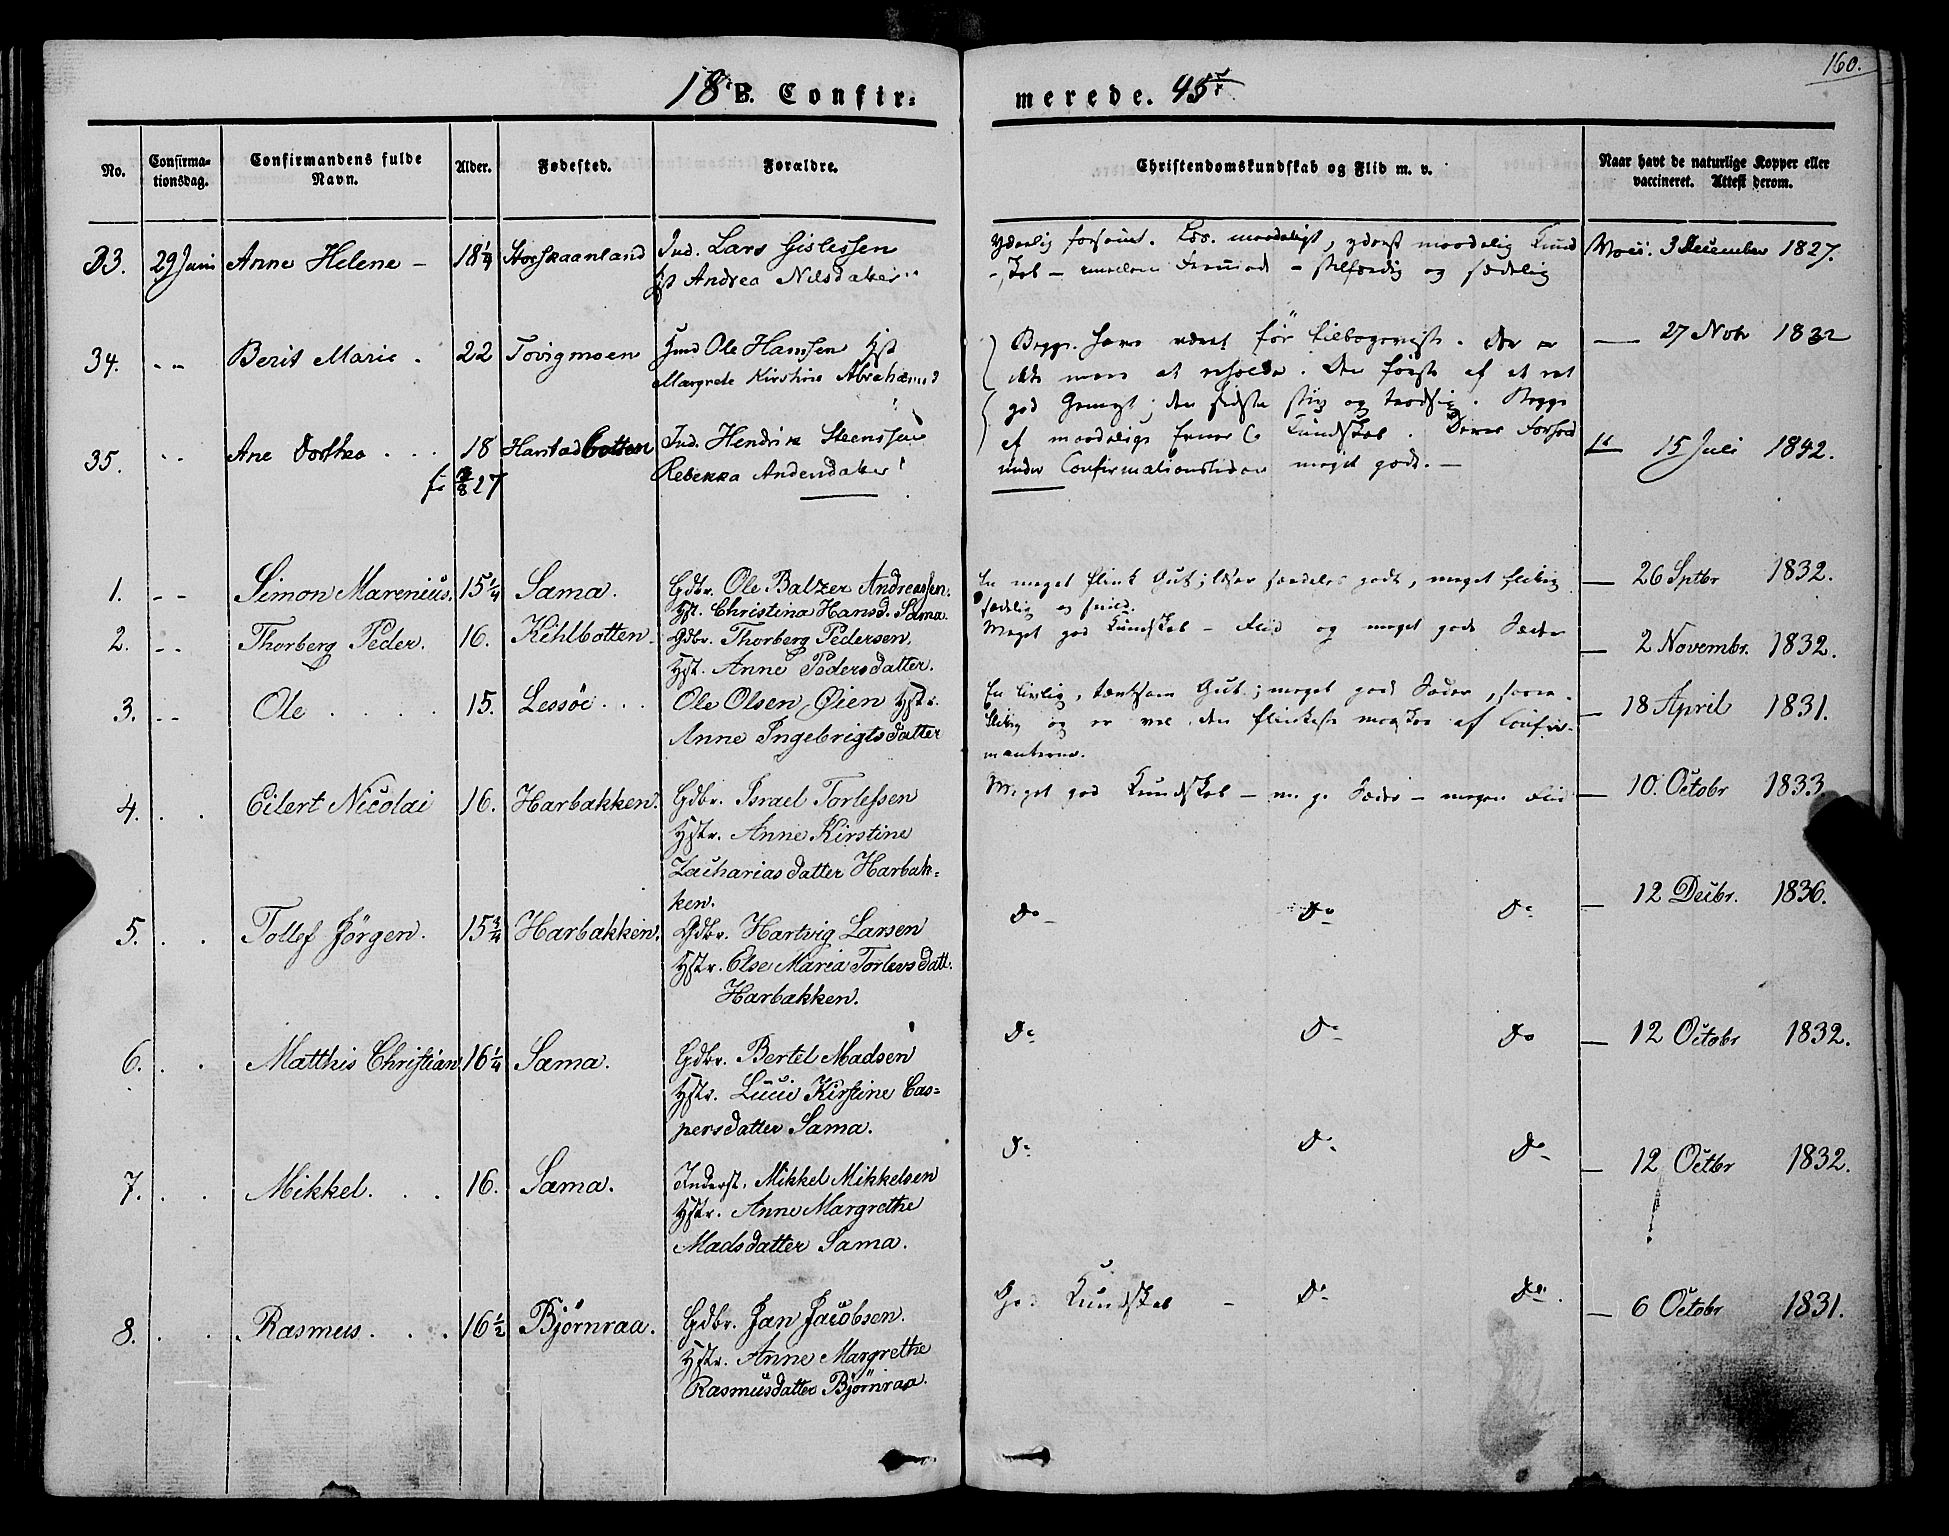 160.
18 B. Confir=merede. 45
No. Confirma-tionsdag. Confirmandens fulde Navn. Alder. Fødested. Forældre. Christendomskundskab og Flid m. v. Naar havt de naturlige Kopper eller vaccineret. Attest derom.
33. 29 Juni Anne Helene - 18 1/4 Storskaanland Ind. Lars Gislessen
Andrea Nilsdatter
3 December 1827.
34. - - Berit Marie . 22 Tovigmoen Hmd Ole Hansen Hst
Margrete Kirstine Abrahamsd
Begge have været før tilbageviste. Der er
ikke mere at udholde. Den første af et ret
god Gemyt; den sidste og trodsig. Begge
af maadelige Evner & Kundskab. Deres Forhold
under Confirmationstiden meget godt. -
— 27 Nobr 1832
35. - - Ane Dorthea . . . 18 Harstadbotten Ind. Hendrik Steenssen
Rebekka Andersdatter
15 Juli 1842.
f. 2/8 27
1. - - Simon Marenius. 15 1/4 Sama. Gdbr. Ole Balzer Andreassen.
Hst. Christina Hansd. Sama.
En meget flink Gut; læser særdeles godt, meget flittig
sædelig og
— 26 Sptbr 1832.
2. - - Thorberg Peder. 16. Kihlbotten. Gdbr. Thorberg Pedersen.
Hst. Anne Pedersdatter.
Meget god Kundskab - Flid og meget gode Sæder
— 2 Novembr. 1832.
3. - - Ole . . . . 15. Lessöe . . . Ole Olsen Øien Hstr.
Anne Ingebrigtsdatter
En livlig, tænksom Gut; meget gode Sæder,
flittig og er vel den flinkeste maaskee af Confir-
manterne.
— 18 April 1831.
4. . . Eilert Nicolai 16. Harbakken. Gdbr. Israel Torlefsen
Hstr. Anne Kirstine
Zachariasdatter Harbak=
ken.
Meget god Kundskab - m. g. Sæder - megen Flid
— 10 Octobr 1833.
5. . . Tollef Jörgen. 15 3/4 Harbakken. Gdbr. Hartvig Larsen
Hstr. Else Maria Torlevsdatt.
Harbakken.
Do Do Do — 12 Decbr. 1836.
6. . . Matthis Christian 16 1/4 Sama. Gdbr. Bertel Madsen
Hstr. Lucie Kirstine Cas=
persdatter Sama.
Do Do Do — 12 Octobr 1832.
7. . . Mikkel. . . 16. Sama. Inderst. Mikkel Mikkelsen
Hstr. Anne Margrethe
Madsdatter Sama.
Do Do Do — 12 Octbr 1832.
8. . . Rasmus. . . . 16 1/2 Björnraa. Gdbr. Jan Jacobsen.
Hstr. Anne Margrethe
Rasmusdatter Björnraa.
God Kundskab - Do Do. — 6 Octobr 1831.